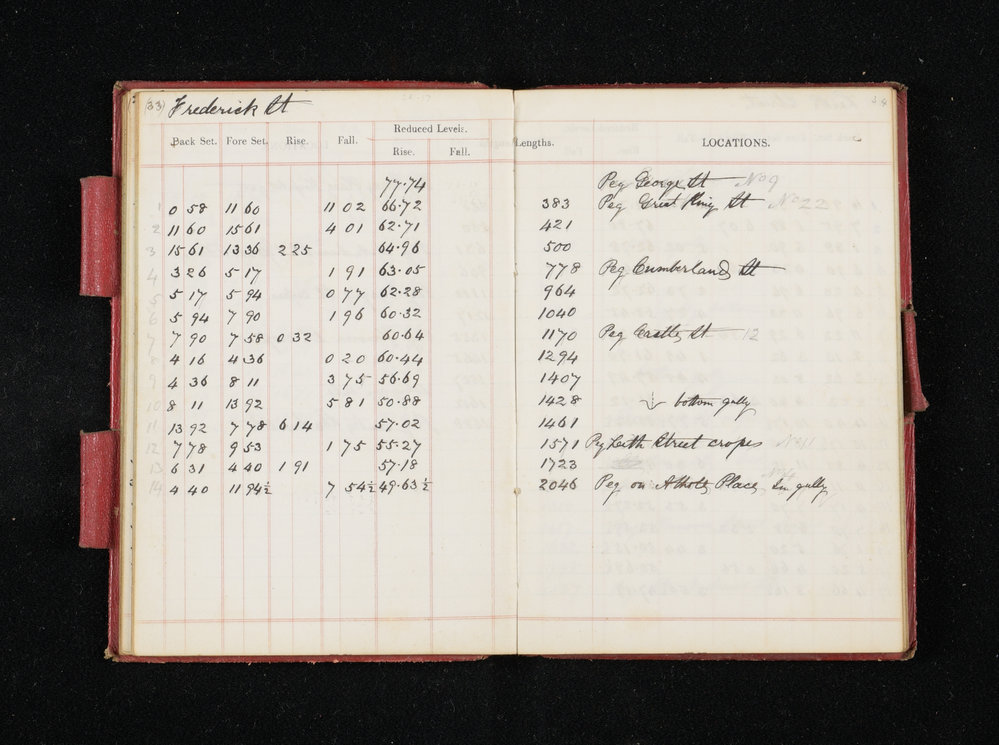 (33) Frederick St 34
Back Set. Fore Set. Rise. Fall. Reduced Levels. Lengths. LOCATIONS.
Rise. Fall.
77.74 Peg George St No 9
1 0 58 11 60 11 02 66.72 383 Peg Great King St No 22
2 11 60 15 61 4 01 62.71 421
3 15 61 13 36 2 25 64.96 500
4 3 26 5 17 1 91 63.05 778 Peg Cumberland St
5 5 17 5 94 0 77 62.28 964
6 5 94 7 90 1 96 60.32 1040
7 7 90 7 58 0 32 60.64 1170 Peg Castle St 12
8 4 16 4 36 0 20 60.44 1294
9 4 36 8 11 3 75 56.69 1407
10 8 11 13 92 5 81 50.88 1428 bottom gully
11 13 92 7 78 6 14 57.02 1461
12 7 78 9 53 1 75 55.27 1571 Peg Leith Street cropes No 11
13 6 31 4 40 1 91 57.18 1723
14 4 40 11 94½ 7 54½ 49.63½ 2046 Peg on Atholl Place In gully